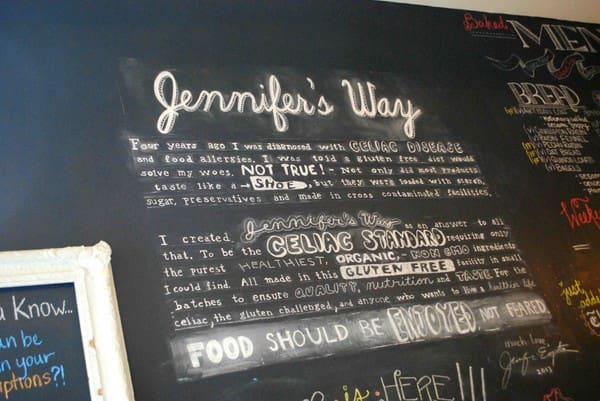 Baked
MEN
BREAD
Jennifer's Way
Four years ago I was diagnosed with CELIAC DISEASE
and food allergies. I was told a gluten free diet would
solve my woes. NOT TRUE! - Not only did most products
taste like a → SHOE, but they were loaded with starch,
sugar, preservatives and made in cross contaminated facilities.
I created Jennifer's Way as an answer to all
that. To be the CELIAC STANDARD requiring only
the purest HEALTHIEST, ORGANIC, - NON GMO ingredients
I could find. All made in this GLUTEN FREE facility in small
batches to ensure QUALITY, nutrition and TASTE. For the
celiac, the gluten challenged, and anyone who wants to live a healthier life
FOOD SHOULD BE ENJOYED NOT FEARED
much love,
2013
u Know...
an be
n your
ptions?!
Weekly
just
added
is HERE!!!